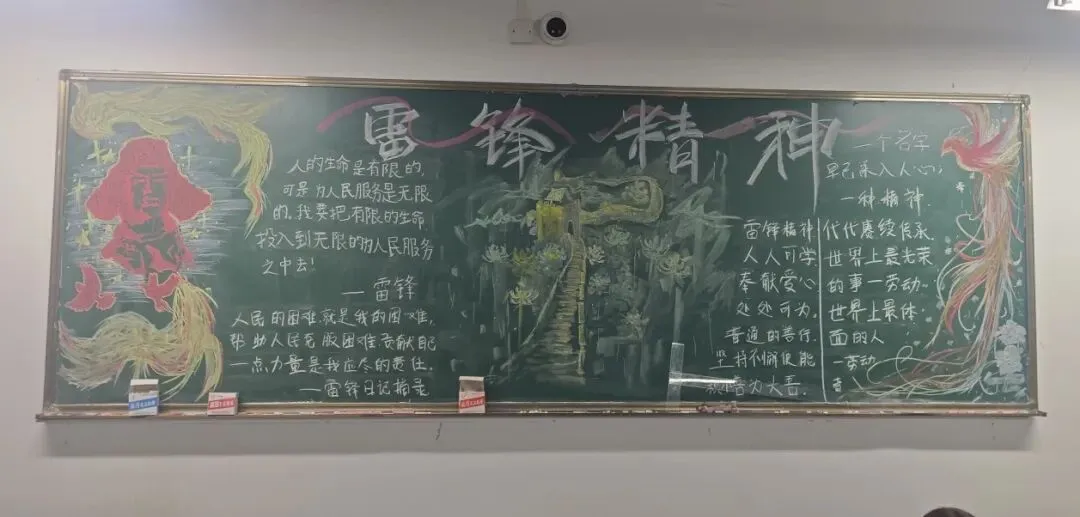 雷锋精神
人的生命是有限的,
可是为人民服务是无限
的。我要把有限的生命
投入到无限的为人民服务
之中去!
—雷锋
人民的困难,就是我的困难,
帮助人民克服困难贡献自己
一点力量是我应尽的责任。
—雷锋日记摘录
雷锋精神
人人可学
奉献爱心
处处可为。
普通的善行
坚持不懈便能
善为大善.
一个名字
早已深入人心;
一种精神
代代赓续传承
世界上最光荣
的事—劳动。
世界上最体
面的人
—劳动
者